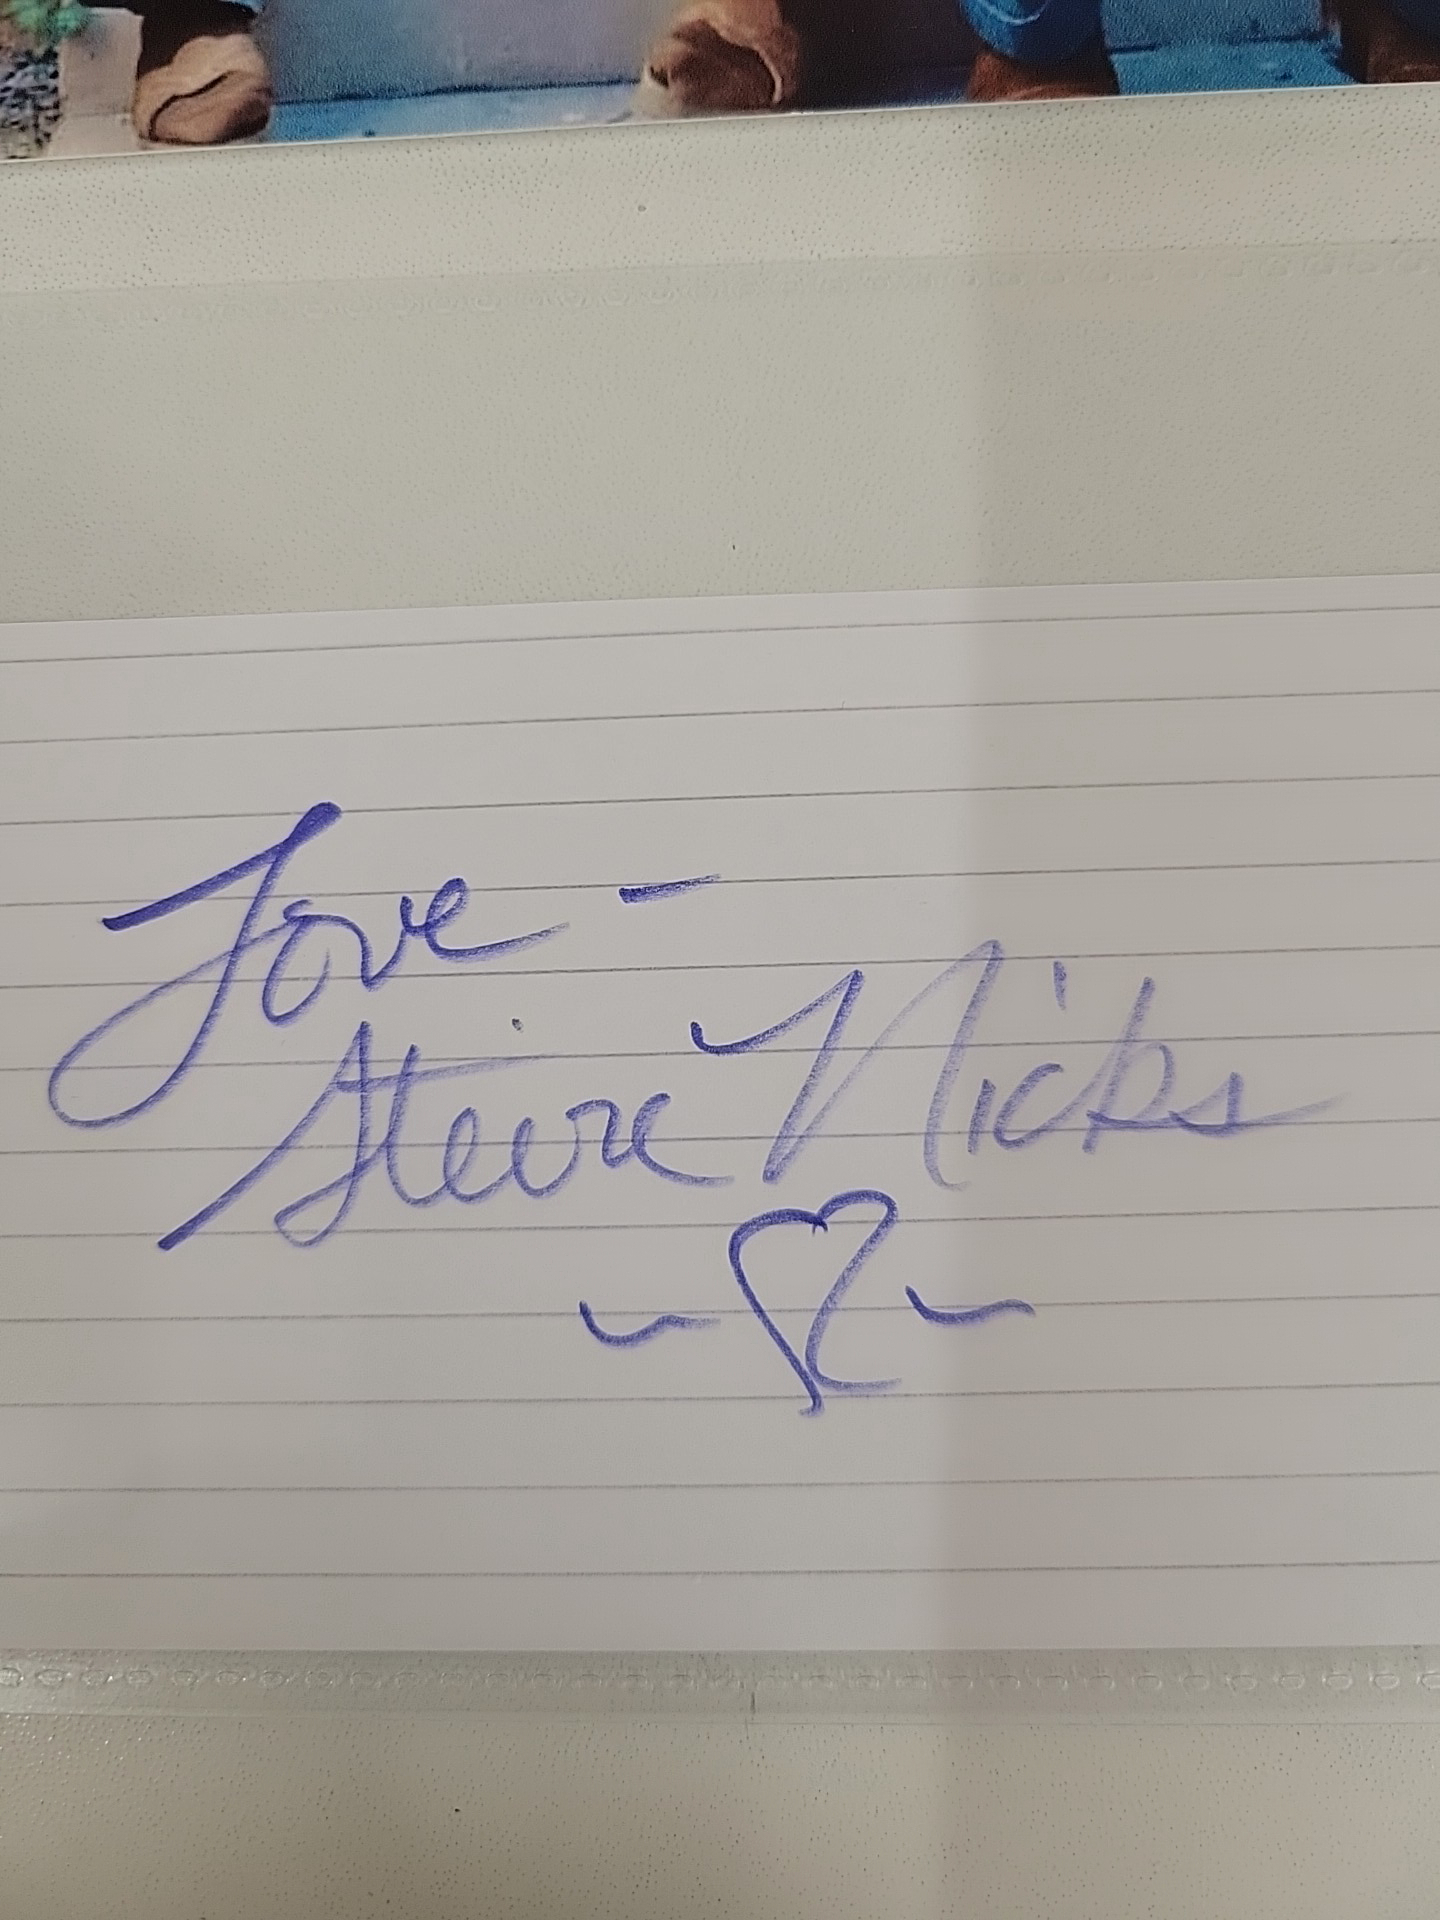 Love -
Stevie Nicks